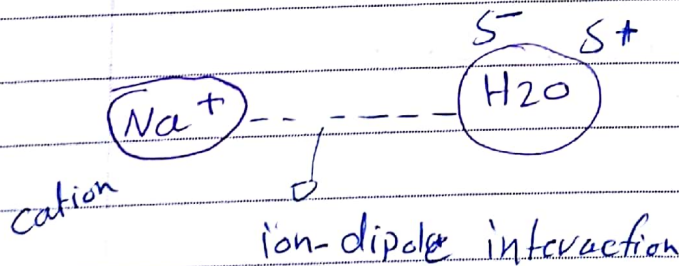 δ- δ+
Na+ H2O
cation
ion-dipole interaction